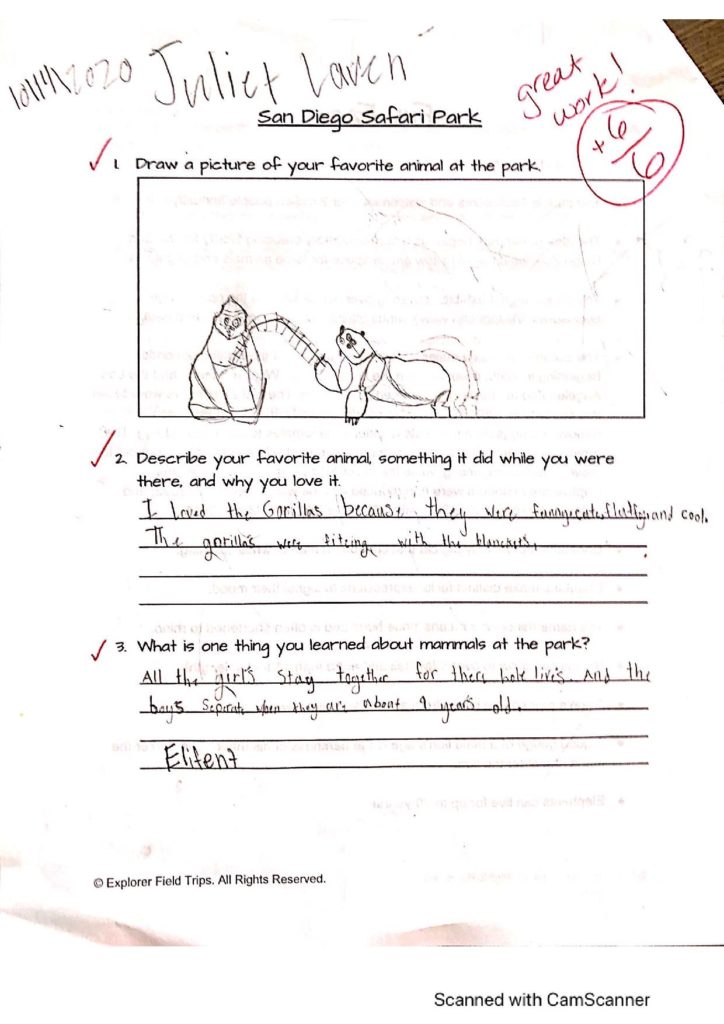 10/14/2020 Juliet Laven
great
work!
San Diego Safari Park
+6/6
1. Draw a picture of your favorite animal at the park.
2. Describe your favorite animal, something it did while you were
there, and why you love it.
I loved the Gorillas because they were funny, cute, and cool.
The gorillas were with the blanckets.
3. What is one thing you learned about mammals at the park?
All the girls stay together for there hole lives. And the
boys Seperate when they are about 9 years old.
Elifent
© Explorer Field Trips. All Rights Reserved.
Scanned with CamScanner